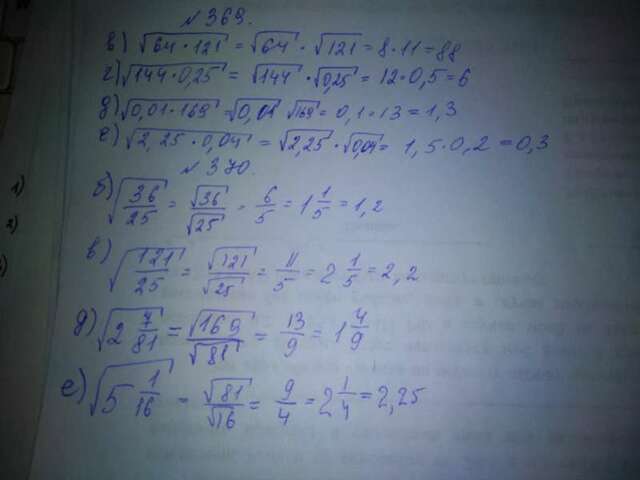 № 369.
в) √64·121 = √64 · √121 = 8·11 = 88
г) √144·0,25 = √144 · √0,25 = 12·0,5 = 6
д) √0,01·169 = √0,01 √169 = 0,1·13 = 1,3
е) √2,25·0,04 = √2,25 · √0,04 = 1,5·0,2 = 0,3
№ 370.
б) √36/25 = √36/√25 = 6/5 = 1 1/5 = 1,2
в) √121/25 = √121/√25 = 11/5 = 2 1/5 = 2,2
д) √2 7/81 = √169/√81 = 13/9 = 1 4/9
е) √5 1/16 = √81/√16 = 9/4 = 2 1/4 = 2,25
1)
2)